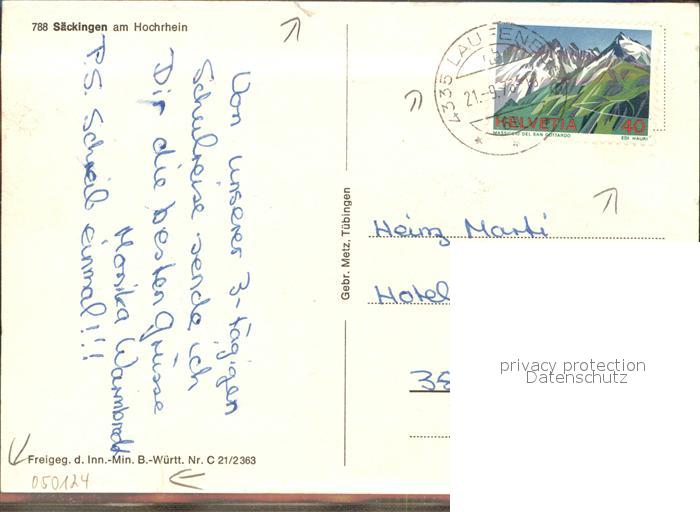 788 Säckingen am Hochrhein
Von unserer 3-tägigen
Schulreise sende ich
Dir die besten Grüsse
Monika Warmbrodt
P.S. Schreib einmal!!!
Gebr. Metz, Tübingen
4335 LAUFENB
21.-9.76
HELVETIA 40
MASSICCIO DEL SAN GOTTARDO
EDI HAURI
Heinz Marti
Hotel
privacy protection
Datenschutz
Freigeg. d. Inn.-Min. B.-Württ. Nr. C 21/2363
050124